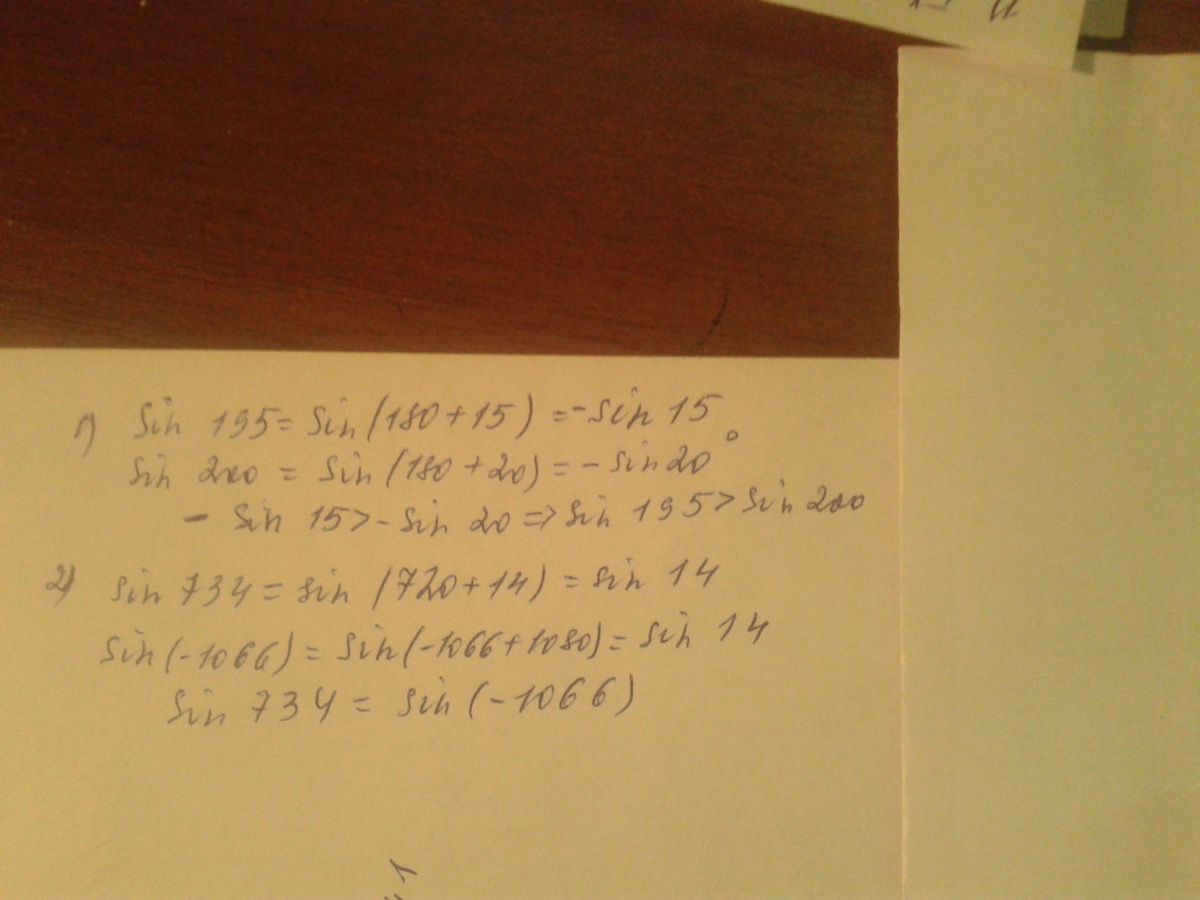 1) sin 195 = sin (180 + 15) = - sin 15
sin 200 = sin (180 + 20) = - sin 20°
- sin 15 > - sin 20 => sin 195 > sin 200
2) sin 734 = sin (720 + 14) = sin 14
sin (-1066) = sin (-1066 + 1080) = sin 14
sin 734 = sin (-1066)